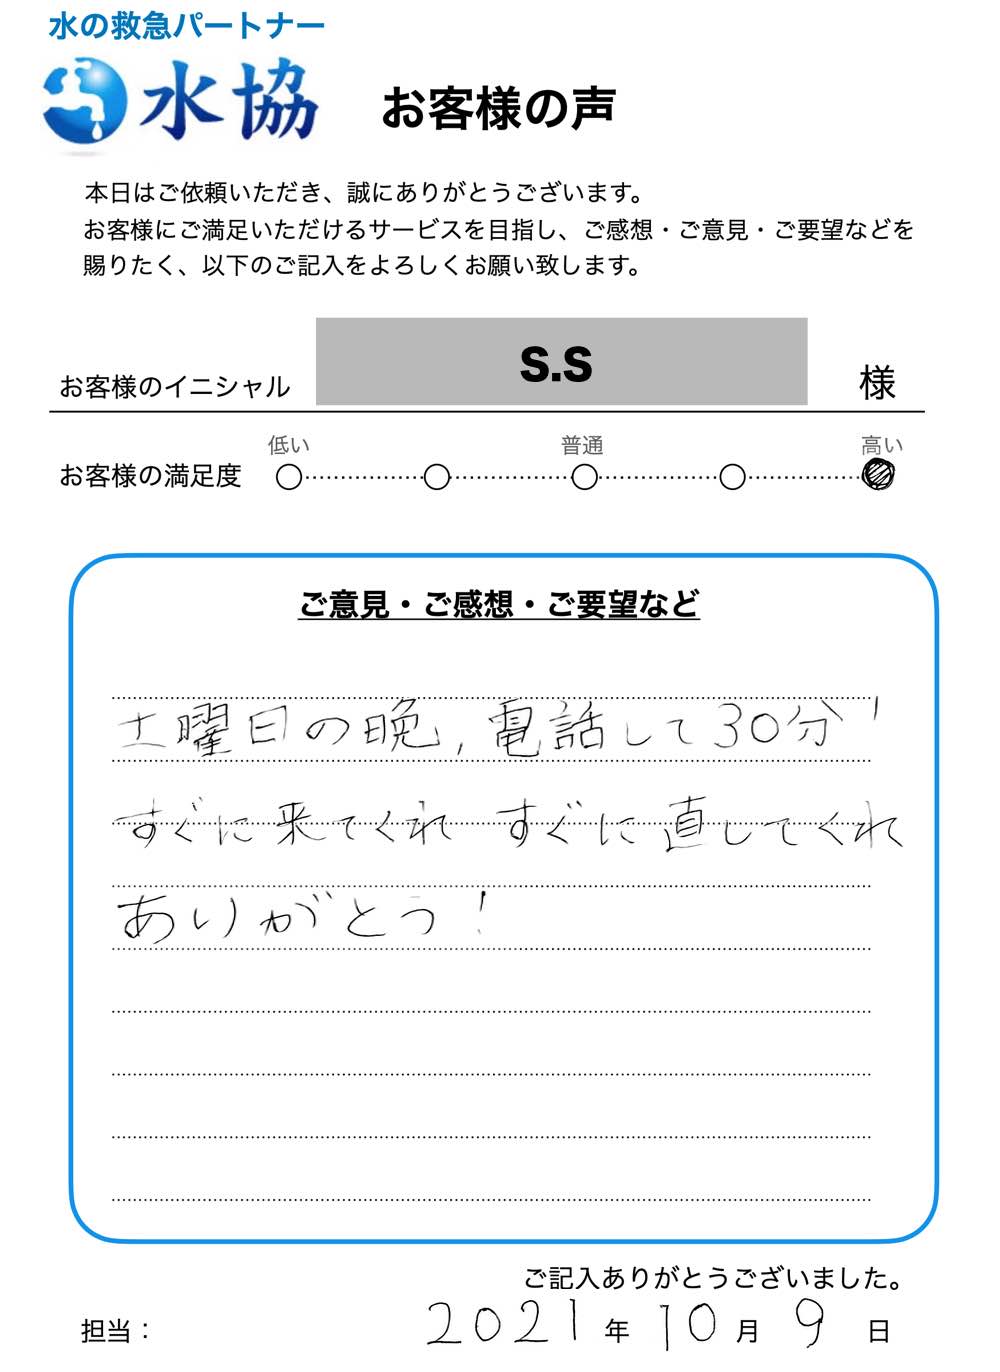 水の救急パートナー
水協
お客様の声
本日はご依頼いただき、誠にありがとうございます。
お客様にご満足いただけるサービスを目指し、ご感想・ご意見・ご要望などを
賜りたく、以下のご記入をよろしくお願い致します。
お客様のイニシャル S.S 様
低い 普通 高い
お客様の満足度
ご意見・ご感想・ご要望など
土曜日の晩,電話して30分!
すぐに来てくれ すぐに直してくれ
ありがとう!
ご記入ありがとうございました。
担当： 2021年10月9日